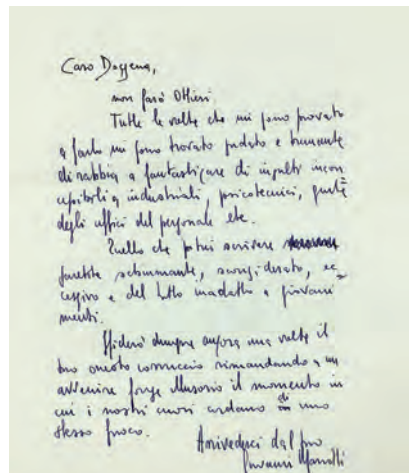 Caro Dossena,
non farò Ottieri.
Tutte le volte che mi sono provato
a farlo mi sono trovato sudato e tremante
di rabbia a fantasticare di insulti incon
cepibili a industriali, psicotecnici, gente
degli uffici del personale etc.
Quello che potrei scrivere
sarebbe schiumante, sconsiderato, ec=
cessivo e del tutto inadatto a giovani
menti.
Sfiderò dunque ancora una volta il
tuo onesto corruccio rimandando a un
avvenire forse illusorio il momento in
cui i nostri cuori ardano di uno
stesso fuoco.
Arrivederci dal tuo
Giovanni